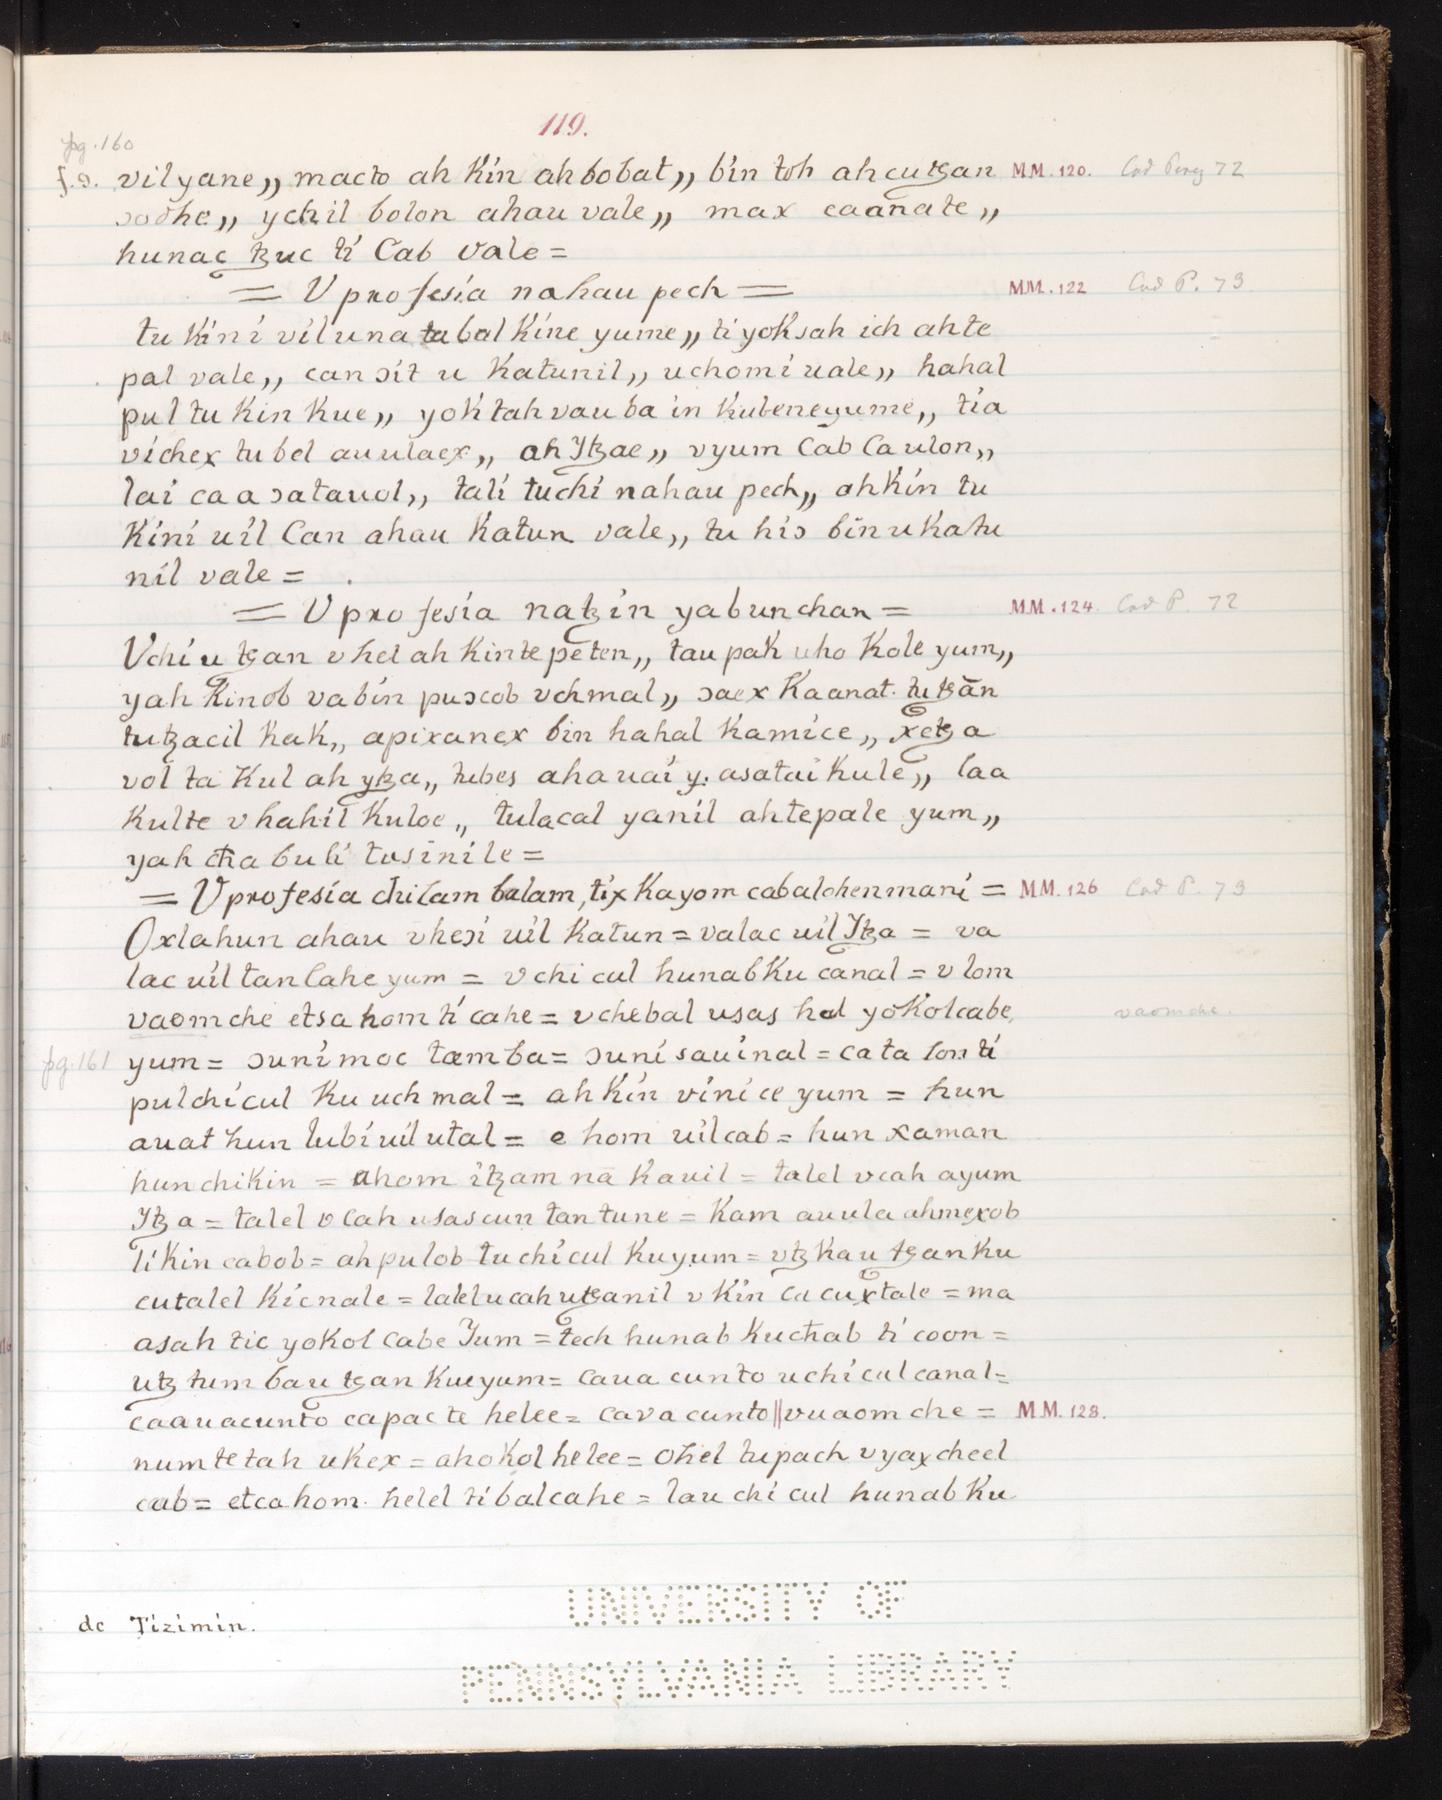 119.
pg. 160
f. 9. vilyane,, macto ah Kin ah bobat,, bin toh ah cutz̵an MM. 120. Cod Perez 72
ɔoohe,, ychil bolon ahau vale,, max caanate,,
hunac tzuc ti Cab vale =
= V profesia nahau pech = MM. 122 Cod P. 73
tu Kini viluna tabal Kine yume,, ti yoksah ich ahte
pal vale,, can ɔit u Katunil,, uchomi uale,, hahal
pul tu Kin Kue,, yoktah vau ba in Kubeneyume,, tia
vichex tu bel auulaex,, ah Ytzae,, vyum Cab Ca ulon,,
lai ca a ɔatauol,, tali tuchi nahau pech,, ahKin tu
Kini uil Can ahau Katun vale,, tu hiɔ bin u Katu
nil vale =
= V profesia natzin yabunchan = MM. 124. Cod P. 72
Vchi u tz̵an vhel ah Kinte peten,, tau pak uho Kole yum,,
yah Kinob vabin puɔcob vchmal,, ɔaex Kaanat. tu tz̵an
tutzacil Kak,, apixanex bin hahal Kamice,, xetz a
vol ta Kul ah ytza,, tubes ahauai y. asatai Kule,, laa
Kulte v hahil Kuloe,, tulacal yanil ahtepale yum,,
yah cħa buli tusinile =
= V profesia chilam balam, tix Kayom cabalchenmani = MM. 126 Cod P. 73
Oxlahun ahau vheɔi uil Katun = valac uil Ytza = va
lac uil tan Cahe yum = v chi cul hunabKu canal = v lom
vaomche etsahom ti cahe = vchebal usas hal yoKolcabe, vaomche.
pg. 161 yum = ɔunimoc tamba = ɔuni sauinal = ca ta lon ti
pulchicul Ku uch mal = ah Kin vinice yum = hun
auat hun lubi uil utal = e hom uilcab = hun xaman
hun chikin = ahom itzam na Kauil = talel vcah ayum
Ytza = talel v Cah usascun tan tune = Kam auula ahmexob
liKin cabob = ah pulob tu chicul Kuyum = vtz Kau tz̵an Ku
cutalel Kicnale = lalelucahutz̵anil v Kin ca cuxtale = ma
asah tic yoKol Cabe Yum = tech hunab Kucħab ti coon =
utz tum bau tz̵an Kueyum = caua cunto uchicul canal =
caauacunto capac te helee = cava cunto || vuaom che = MM. 128.
numtetah uKex = ahoKol helee = ohel tupach vyaxcheel
cab = etcahom. helel tibalcahe = lau chi cul hunabKu
de Tizimin.
UNIVERSITY OF
PENNSYLVANIA LIBRARY